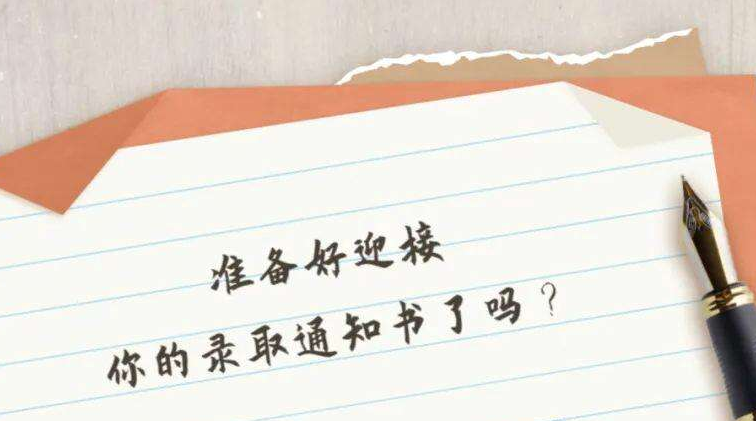 准备好迎接
你的录取通知书了吗？